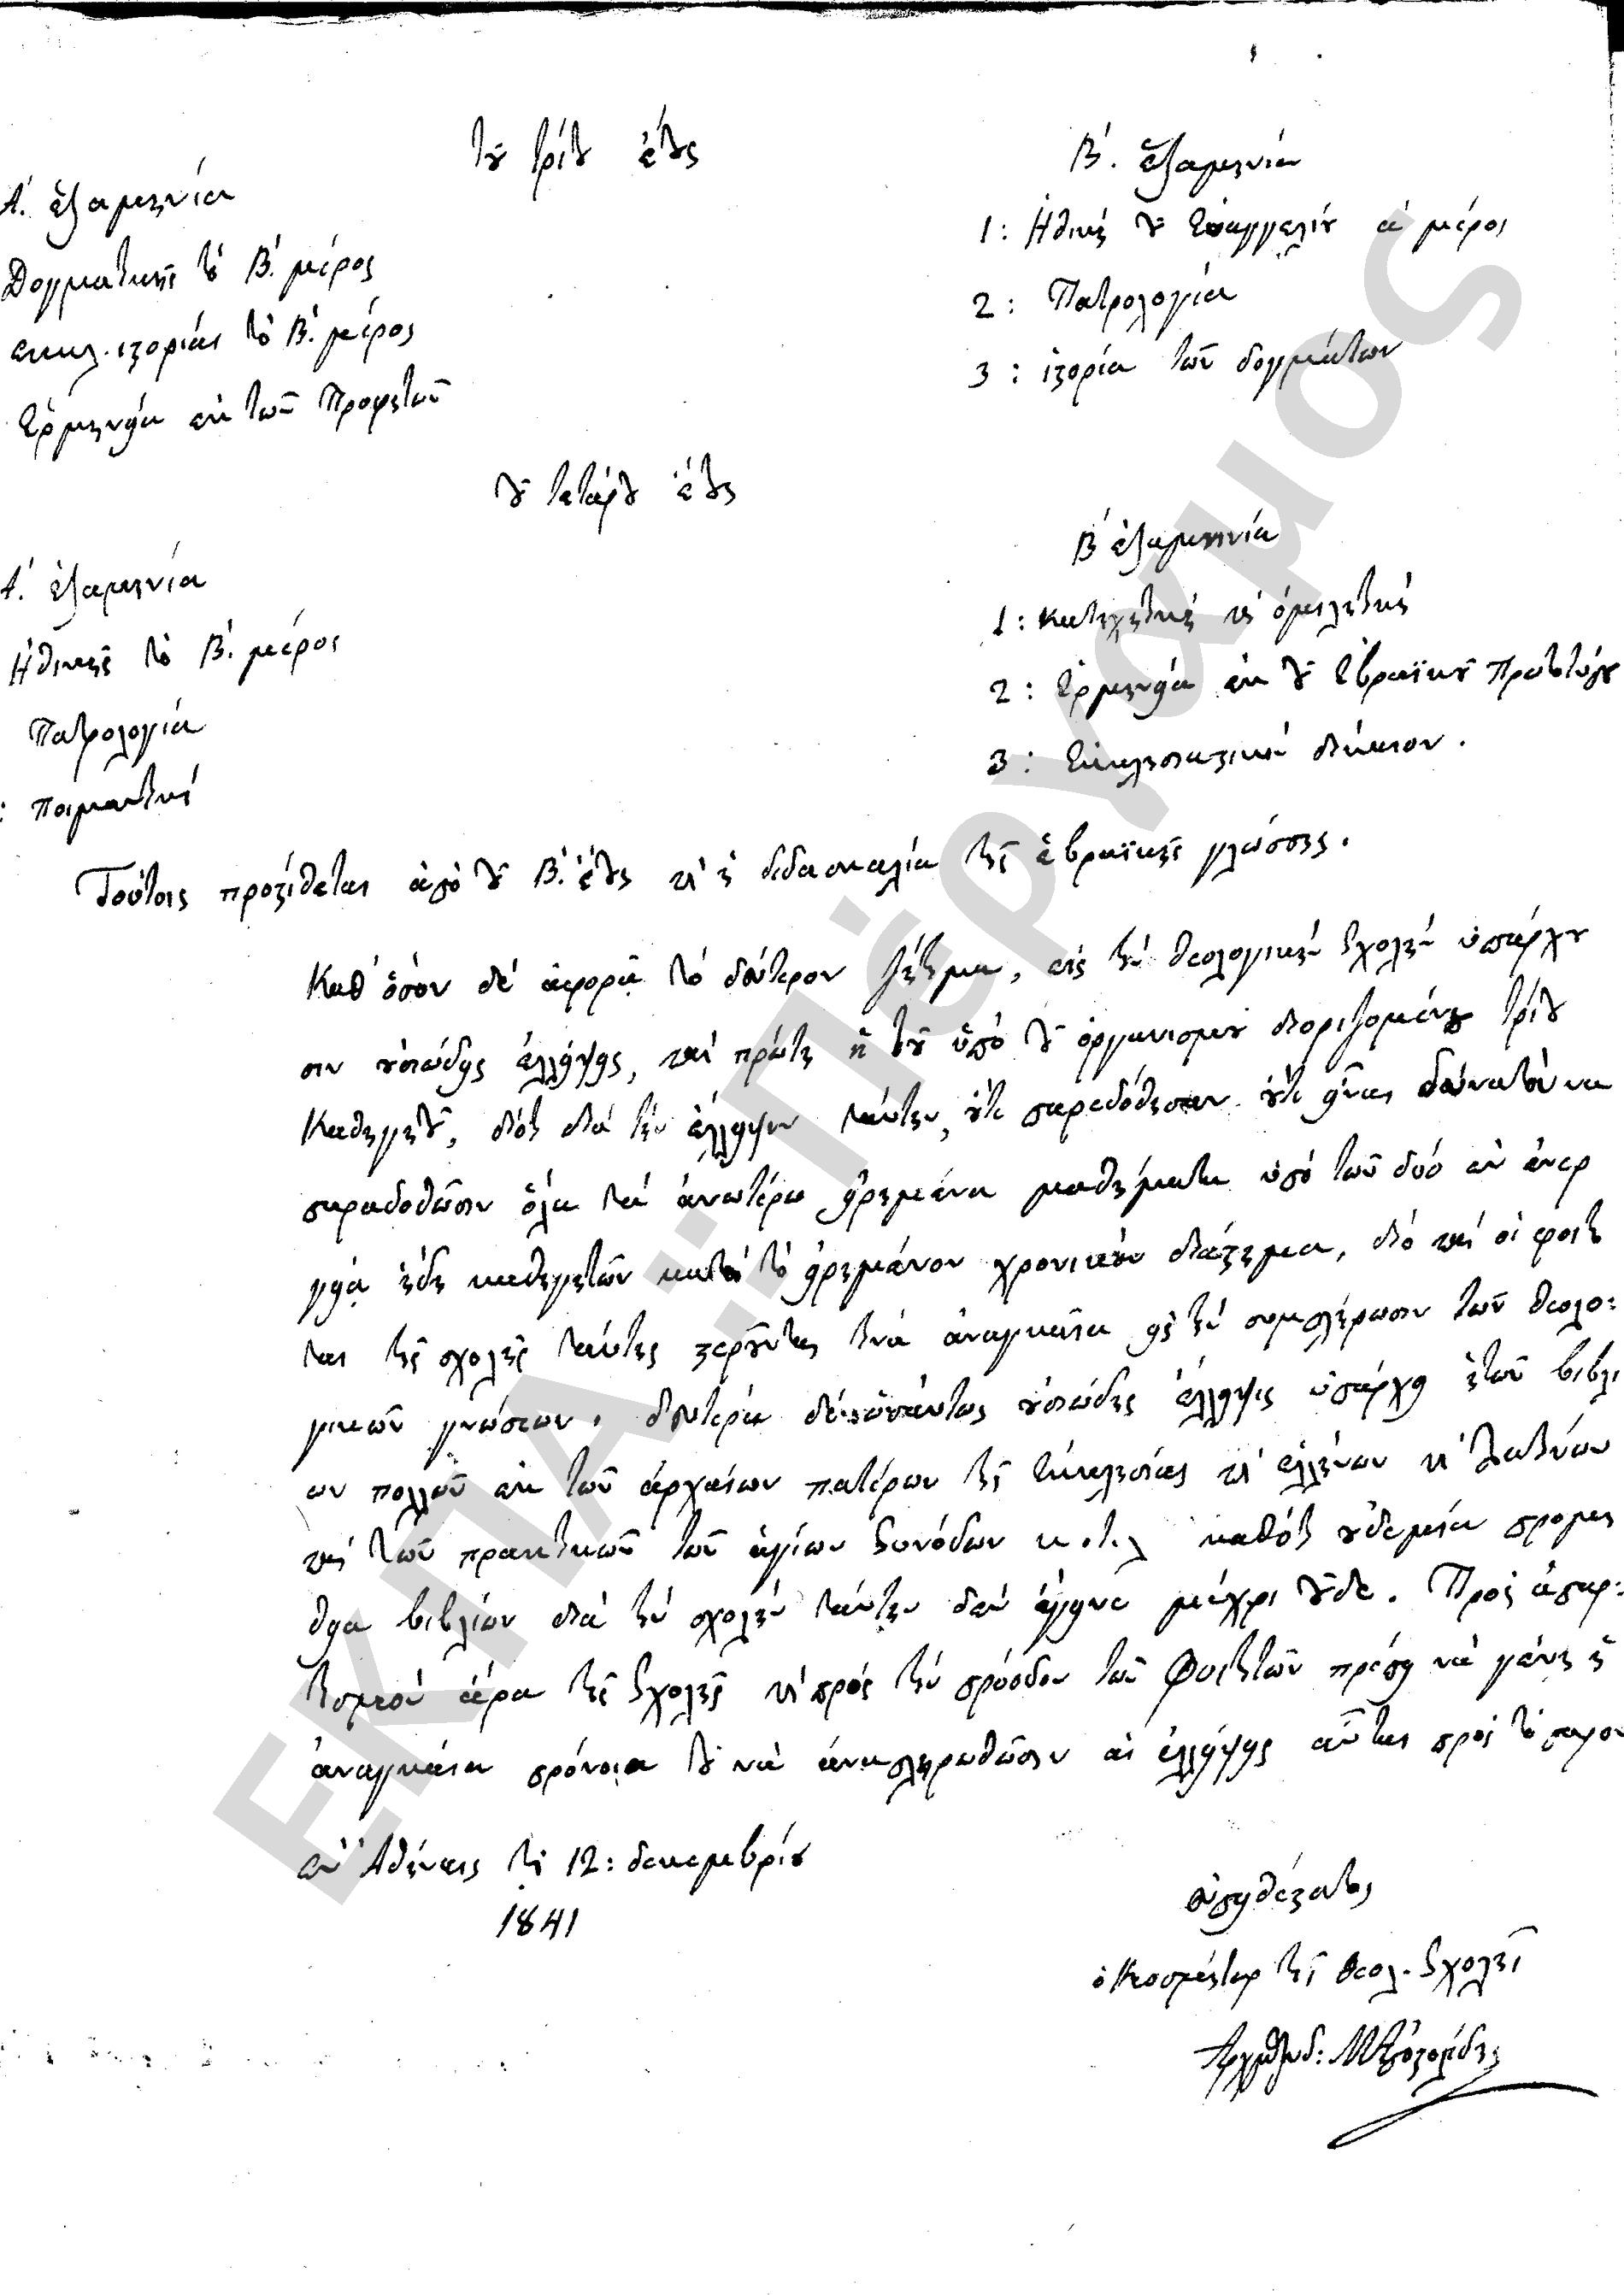 τοῦ τρίτου ἔτους
Α΄. ἑξαμηνία
Δογματικῆς τὸ Β΄. μέρος
εκκλ. ιστορίας τὸ Β΄. μέρος
Ἑρμηνεία εκ τῶν Προφητῶν
Β΄. ἑξαμηνία
1: Ηθικὴ τοῦ Ευαγγελίου α΄ μέρος
2: Πατρολογία
3: ἱστορία τῶν δογμάτων
τοῦ τετάρτου ἔτους
Α΄. ἑξαμηνία
Ηθικῆς τὸ Β΄. μέρος
Πατρολογία
: ποιμαντική
Β΄ ἑξαμηνία
1: κατηχητικὴ καὶ ὁμιλητική
2: Ἑρμηνεία ἐκ τοῦ Ἑβραϊκοῦ Πρωτοτύπου
3: Ἐκκλησιαστικὸν δίκαιον.
Τούτοις προστίθεται ἀπὸ τοῦ Β΄. ἔτους καὶ ἡ διδασκαλία τῆς ἑβραϊκῆς γλώσσης.
Καθ᾽ ὅσον δὲ ἀφορᾷ τὸ δεύτερον ζήτημα, εἰς τὴν θεολογικὴν Σχολὴν ὑπάρχου
σιν οὐσιώδεις ἐλλείψεις, καὶ πρώτη ἡ τοῦ ὑπὸ τοῦ ὀργανισμοῦ διοριζομένου τρίτου
Καθηγητοῦ, διότι διὰ τὴν ἔλλειψιν ταύτην, οὔτε παρεδόθησαν οὔτε εἶναι δύνατὸν να
παραδοθῶσιν ὅλα τὰ ἀνωτέρω εἰρημένα μαθήματα ὑπὸ τῶν δύο ἐν ἐνερ
γείᾳ ἤδη καθηγητῶν κατὰ τὸ εἰρημένον χρονικὸν διάστημα, διὸ καὶ οἱ φοιτη
ται τῆς σχολῆς ταύτης στεροῦνται τινὰ ἀναγκαῖα εἰς τὴν συμπλήρωσιν τῶν θεολο:
γικῶν γνώσεων. δευτέρα δὲ ὡσαύτως οὐσιώδης ἔλλειψις ὑπάρχει ἡ τῶν βιβλί
ων πολλῶν ἐκ τῶν ἀρχαίων πατέρων τῆς Ἐκκλησίας καὶ ἑλλήνων καὶ Λατίνων
καὶ τῶν πρακτικῶν τῶν ἁγίων Συνόδων κ.τ.λ καθότι οὐδεμία προμη
θεια βιβλίων διὰ τὴν σχολὴν ταύτην δὲν ἔγεινε μέχρι τοῦδε. Πρὸς ἀπαρ:
τισμὸν ἄρα τῆς Σχολῆς καὶ πρὸς τὴν πρόοδον τῶν Φοιτητῶν πρέπει νὰ γένη ἡ
ἀναγκαία πρόνοια τοῦ νὰ ἀναπληρωθῶσιν αἱ ἐλλείψεις αὗται πρὸς τὸ παρὸν
ἐν Ἀθήναις τῇ 12: δεκεμβρίου
1841
εὐπειθέστατος
ὁ Κοσμήτωρ τῆς θεολ. Σχολῆς
Ἀρχιμανδ: Μ Ἀποστολίδης
ΕΚΠΑ:.Πέργαμος